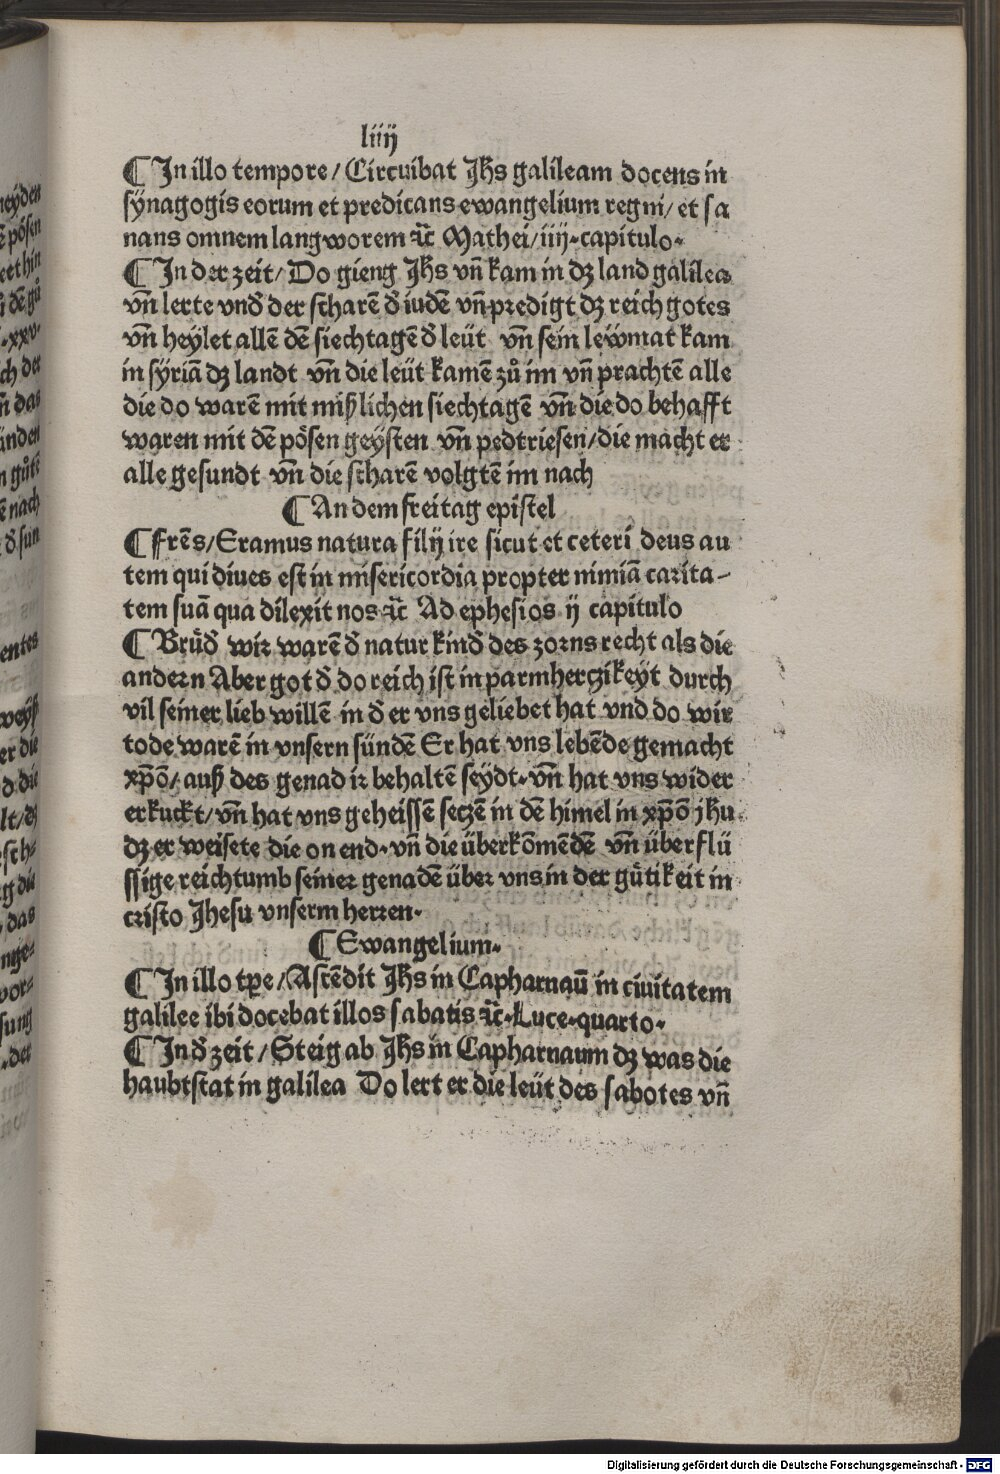 liiij
¶ In illo tempore/ Circuibat Jhs galileam docens in
synagogis eorum et predicans ewangelium regni/ et sa
nans omnem langworem ⁊c̄ Mathei/iiij·capitulo·
¶ In der zeit/ Do gieng Jhs vn̄ kam in dz land galilea
vn̄ lerte vnd̕ der scharē d̕ iudē vn̄ predigt dz reich gotes
vn̄ heylet allē dē siechtagē d̕ leüt vn̄ sein leẅmat kam
in syriā dz landt vn̄ die leüt kamē zů im vn̄ prachtē alle
die do warē mit mißlichen siechtagē vn̄ die do behafft
waren mit dē pösen geÿsten vn̄ pedtriesen/die macht er
alle gesundt vn̄ die scharē volgtē im nach
¶ An dem freitag epistel
¶ Frēs/Eramus natura filij ire sicut et ceteri deus au
tem qui diues est in misericordia propter nimiā carita-
tem suā qua dilexit nos ⁊c̄ Ad ephesios ij capitulo
¶ Brüd̕ wir warē d̕ natur kind̕ des zorns recht als die
andern Aber got d̕ do reich ist in parmherczikeyt durch
vil seiner lieb willē in d̕ er vns geliebet hat vnd do wir
tode warē in vnsern sündē Er hat vns lebēde gemacht
xp̄ō/ auß des genad ir behaltē seÿdt·vn̄ hat vns wider
erkuckt/vn̄ hat vns geheissē seczē in dē himel in xp̄ō jhu
dz er weisete die on end·vn̄ die überkōmēdē vn̄ überflü
ssige reichtumb seiner genadē über vns in der gütikeit in
cristo Jhesu vnserm herren·
¶ Ewangelium·
¶ In illo tp̄e/Ascēdit Jhs in Capharnaū in ciuitatem
galilee ibi docebat illos sabatis ⁊c̄·Luce·quarto·
¶ In d̕ zeit/Steig ab Jhs in Capharnaum dz was die
haubtstat in galilea Do lert er die leüt des sabotes vn̄
Digitalisierung gefördert durch die Deutsche Forschungsgemeinschaft - DFG